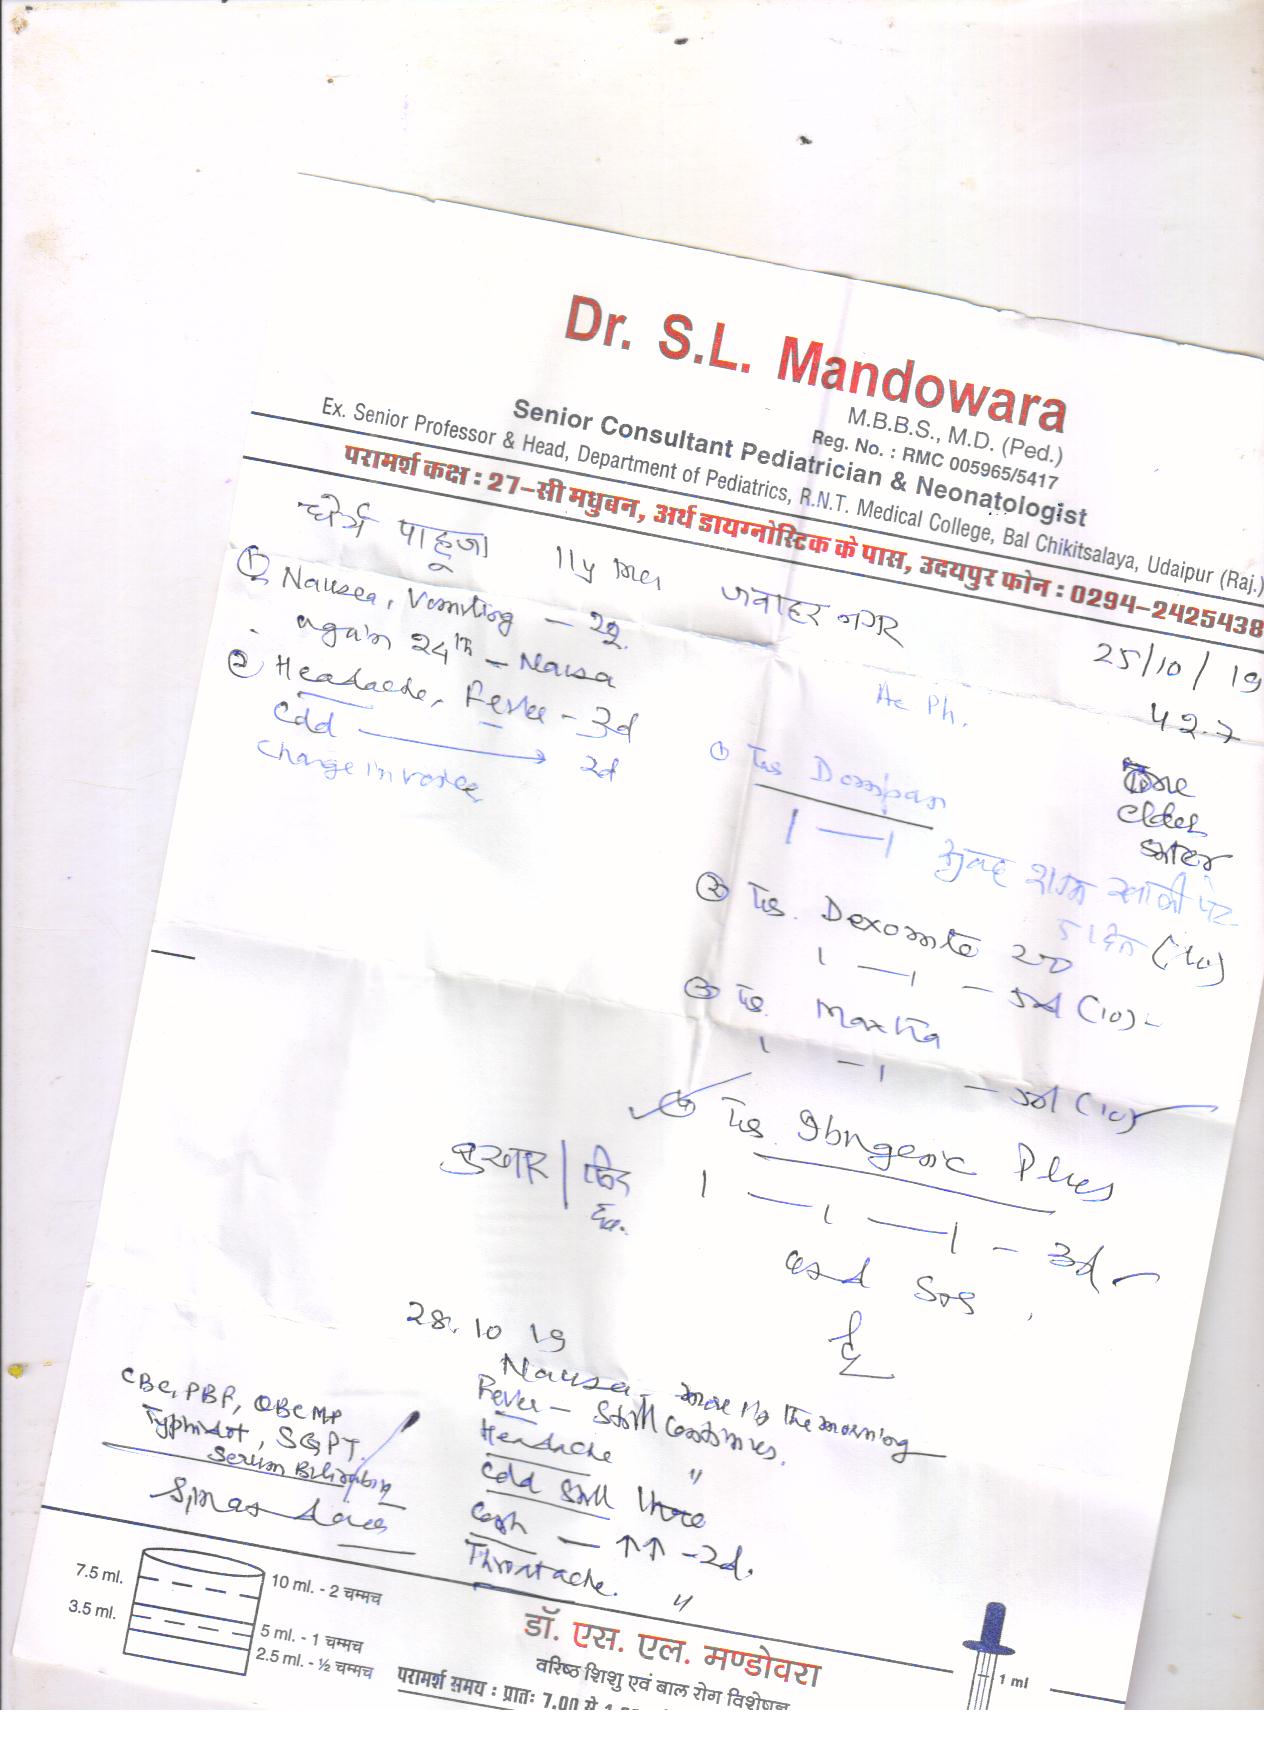 Dr. S.L. Mandowara
M.B.B.S., M.D. (Ped.)
Reg. No. : RMC 005965/5417
Senior Consultant Pediatrician & Neonatologist
Ex. Senior Professor & Head, Department of Pediatrics, R.N.T. Medical College, Bal Chikitsalaya, Udaipur (Raj.)
परामर्श कक्ष : 27-सी मधुबन, अर्थ डायग्नोस्टिक के पास, उदयपुर फोन : 0294-2425438
पाहूजा 11y जवाहर नगर
25/10/19
42.7
① Nausea, Vomiting - 22.
again 24th - Nausea
② Headache, Fever - 3d
Cold → 2d
Change in voice
Ac Ph.
elder
① Tab Dompan
1 — 1 सुबह शाम खाली पेट
5 दिन (10)
② Tab. Dexomte 200
1 — 1 - 5d (10) -
③ Tab.
1 - 1 - 5d (10)
④ Tab. Ibugesic Plus
बुखार / सिर
1 — 1 — 1 - 3d
and SOS
28.10 19
Nausea - more in the morning
Fever - Still Continues.
Headache "
Cold Still there
Cough — ↑↑ - 2d.
Throatache. "
CBC, PBF, QBC MP
Typhidot, SGPT.
Serum Bilirubin
7.5 ml.
3.5 ml.
10 ml. - 2 चम्मच
5 ml. - 1 चम्मच
2.5 ml. - ½ चम्मच
डॉ. एस. एल. मण्डोवरा
वरिष्ठ शिशु एवं बाल रोग विशेषज्ञ
परामर्श समय : प्रातः 7.00 से
1 ml